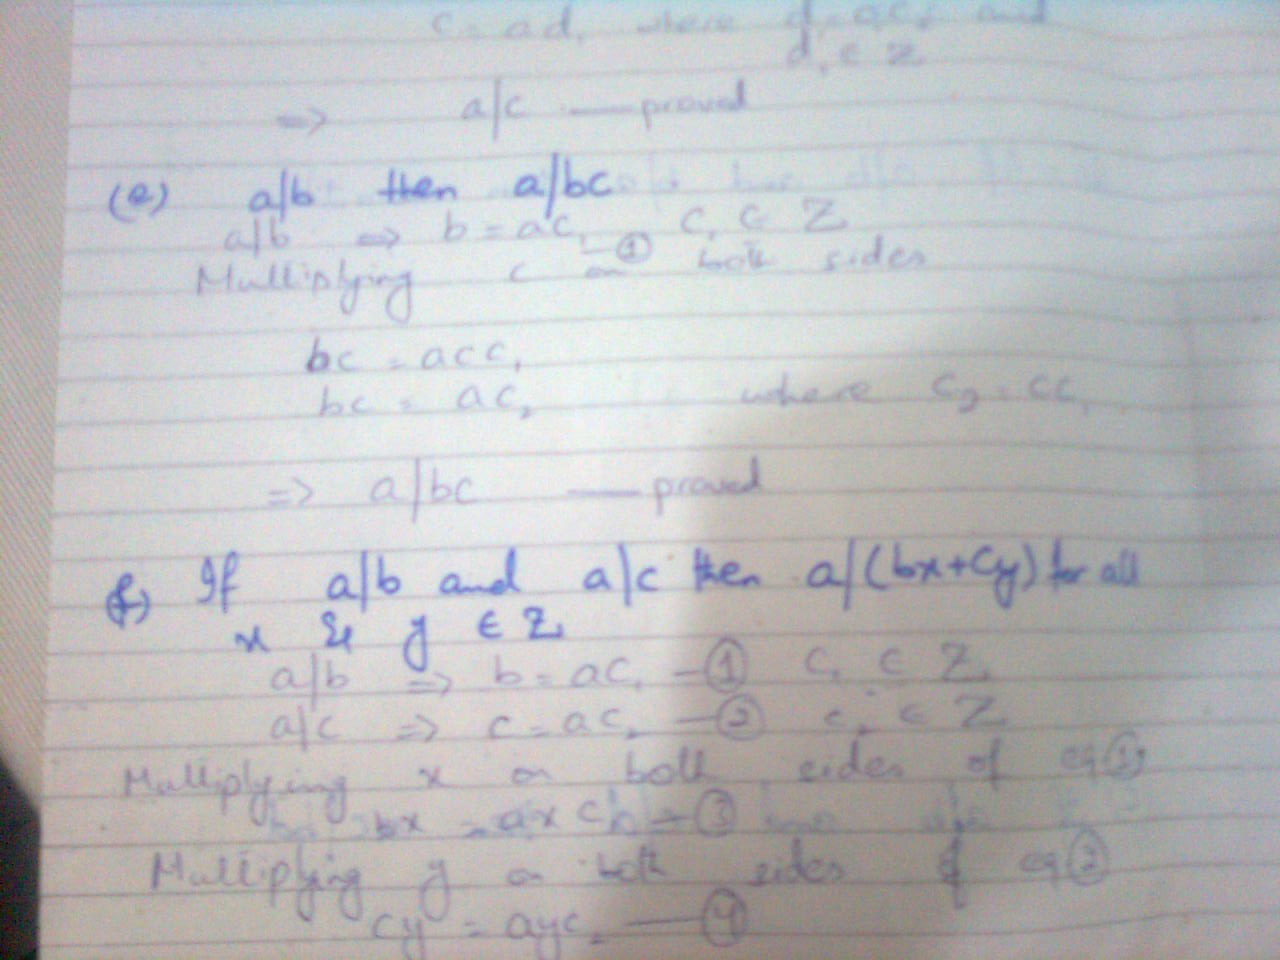 c = ad, where d = ac₂ and
d, ∈ Z
=> a|c — proved
(e) a|b then a|bc
a|b => b = ac₁ — ① c₁ ∈ Z
Multiplying c on both sides
bc = acc₁
bc = ac₂ where c₂ = cc₁
=> a|bc — proved
(f) If a|b and a|c then a|(bx+cy) for all
x & y ∈ Z
a|b => b = ac₁ — ① c₁ ∈ Z
a|c => c = ac₂ — ② c₂ ∈ Z
Multiplying x on both sides of eq ①
bx = ax c₁ — ③
Multiplying y on both sides of eq ②
cy = ayc₂ — ④